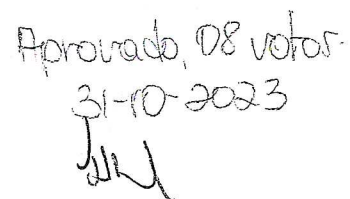 Aprovado, 08 votos.
31-10-2023